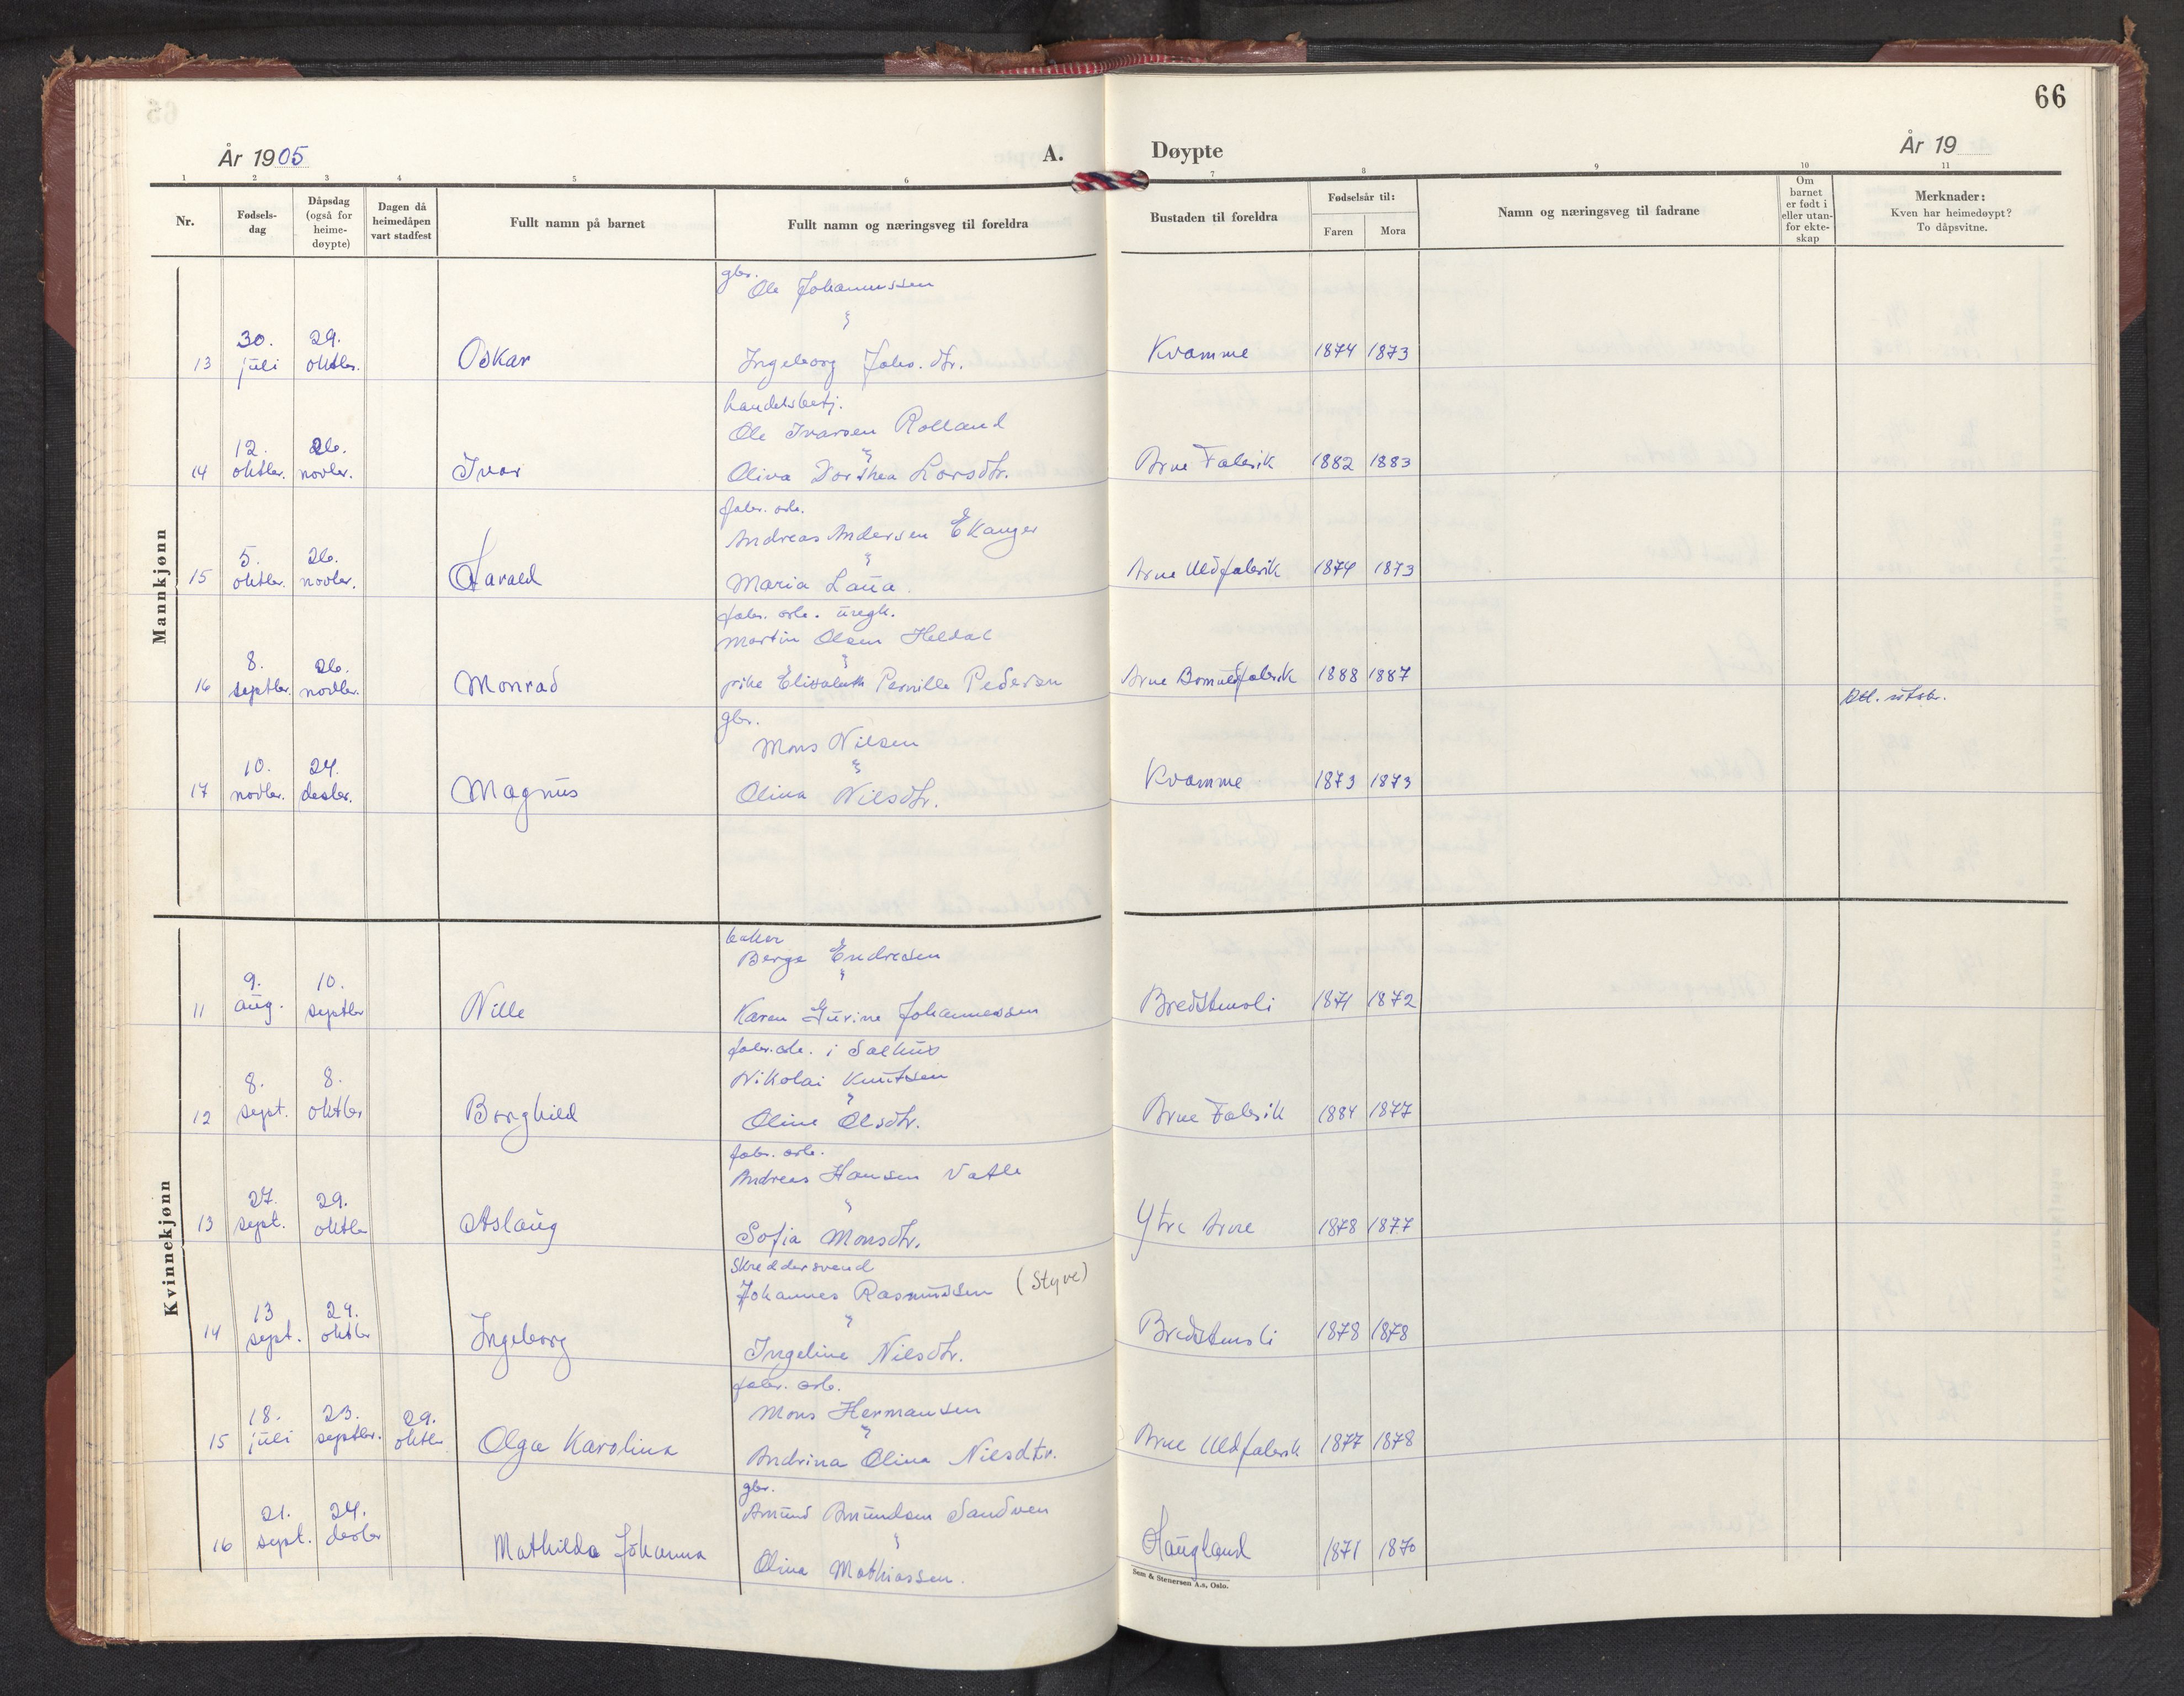 66
År 1905
A.
Døypte
År 19
1 2 3 4 5 6 7 8 9 10 11
Nr.
Fødsels-
dag
Dåpsdag
(også for
heime-
døypte)
Dagen då
heimedåpen
vart stadfest
Fullt namn på barnet
Fullt namn og næringsveg til foreldra
Bustaden til foreldra
Fødselsår til:
Faren
Mora
Namn og næringsveg til fadrane
Om
barnet
er født i
eller utan-
for ekte-
skap
Merknader:
Kven har heimedøypt?
To dåpsvitne.
Mannkjønn
gbr.
Ole Johannessen
30. 29.
13 juli oktbr. Oskar Ingeborg Johs. dtr. Kvamme 1874 1873
handelsbetj.
Ole Ivarsen Rolland
12. 26.
14 oktbr. novbr. Ivar Oliva Dorthea Larsdtr. Arne Fabrik 1882 1883
fabr. arb.
Andreas Andersen Ekanger
5. 26.
15 oktbr. novbr. Harald Maria Laua Arne Uldfabrik 1874 1873
fabr. arb. ungk.
Martin Olsen Heldal
8. 26.
16 septbr. novbr. Monrad pike Elisabeth Pernille Pedersen Arne Bomuldfabrik 1888 1887
Att. utskr.
gbr.
Mons Nilsen
10. 24.
17 novbr. desbr. Magnus Olina Nilsdtr. Kvamme 1873 1873
Kvinnekjønn
baker
Berge Endresen
9. 10.
11 aug. septbr Nille Karen Gurine Johannessen Bredstensli 1871 1872
fabr. arb. i Salhus
Nikolai Knutsen
8. 8.
12 sept. oktbr Borghild Oline Olsdtr. Arne Fabrik 1884 1877
fabr. arb.
Andreas Hansen Vatle
27. 29.
13 sept. oktbr Aslaug Sofia Monsdtr. Ytre Arne 1878 1877
skreddersvend
Johannes Rasmussen (Styve)
13 29.
14 sept. oktbr Ingeborg Ingeline Nilsdtr. Bredstensli 1878 1878
fabr. arb.
Mons Hermansen
18. 23. 29.
15 juli septbr. oktbr. Olga Karolina Andrina Olina Nilsdtr. Arne Uldfabrik 1877 1878
gbr.
Amund Amundsen Sandven
21. 24.
16 sept. desbr Mathilda Johanna Olina Mathiassen. Haugland 1871 1870
Sem & Stenersen A.s, Oslo.